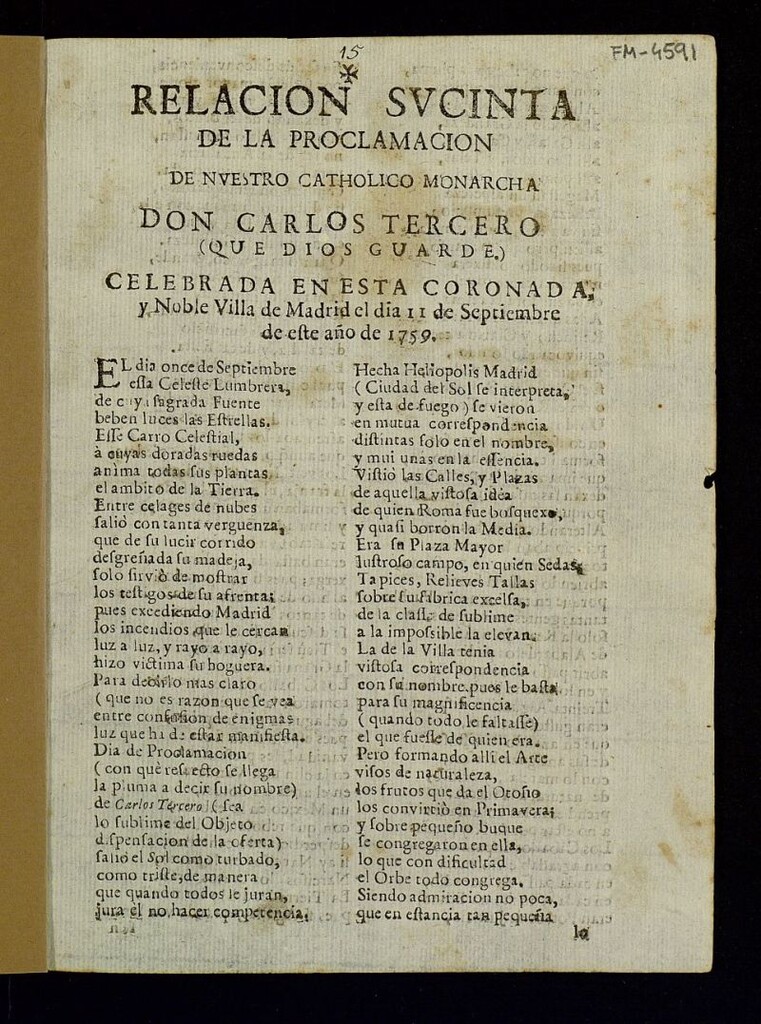 15
FM-4591
RELACION SVCINTA
DE LA PROCLAMACION
DE NVESTRO CATHOLICO MONARCHA
DON CARLOS TERCERO
(QUE DIOS GUARDE.)
CELEBRADA EN ESTA CORONADA,
y Noble Villa de Madrid el dia 11 de Septiembre
de este año de 1759.
EL dia once de Septiembre
essa Celeste Lumbrera,
de cuya sagrada Fuente
beben luces las Estrellas.
Esse Carro Celestial,
à cuyas doradas ruedas
anima todas sus plantas
el ambito de la Tierra.
Entre celages de nubes
saliò con tanta verguenza,
que de su lucir corrido
desgreñada su madeja,
solo sirviò de mostrar
los testigos de su afrenta;
pues excediendo Madrid
los incendios que le cercan
luz a luz, y rayo a rayo,
hizo victima su hoguera.
Para decirlo mas claro
( que no es razon que se vea
entre confusion de enigmas
luz que ha de estar manifiesta.
Dia de Proclamacion
( con què respecto se llega
la pluma a decir su nombre)
de Carlos Tercero) ( sea
lo sublime del Objeto
dispensacion de la oferta)
saliò el Sol como turbado,
como triste, de manera
que quando todos le juran,
jura èl no hacer competencia.
Hecha Heliopolis Madrid
( Ciudad del Sol se interpreta,
y esta de fuego ) se vieron
en mutua correspondencia
distintas solo en el nombre,
y mui unas en la essencia.
Vistiò las Calles, y Plazas
de aquella vistosa idèa
de quien Roma fue bosquexo,
y quasi borron la Media.
Era su Plaza Mayor
lustroso campo, en quien Sedas,
Tapices, Relieves Tallas
sobre su fabrica excelsa,
de la classe de sublime
a la impossible la elevan.
La de la Villa tenia
vistosa correspondencia
con su nombre, pues le basta
para su magnificencia
( quando todo le faltasse)
el que fuesse de quien era.
Pero formando alli el Arte
visos de naturaleza,
los frutos que da el Otoño
los convirtiò en Primavera;
y sobre pequeño buque
se congregaron en ella,
lo que con dificultad
el Orbe todo congrega.
Siendo admiracion no poca,
que en estancia tan pequeña
lo